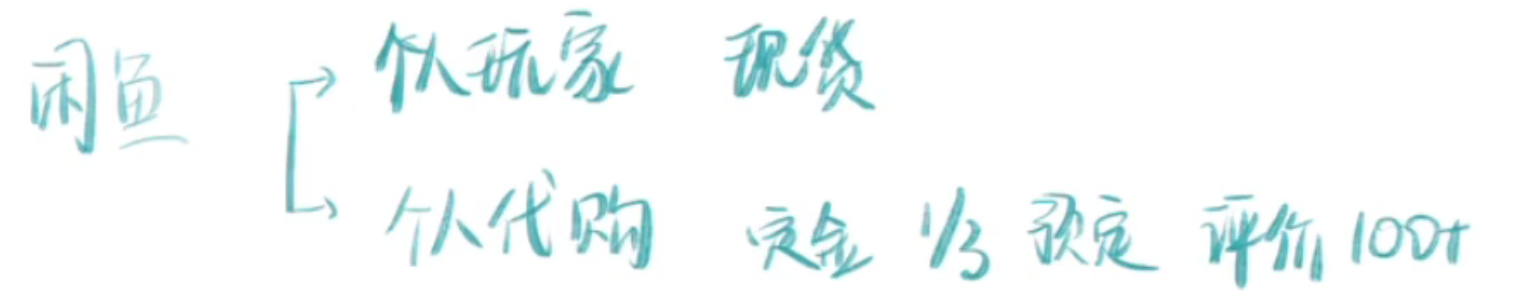 闲鱼
个人玩家 现货
个人代购 定金 1/3 预定 评价100+